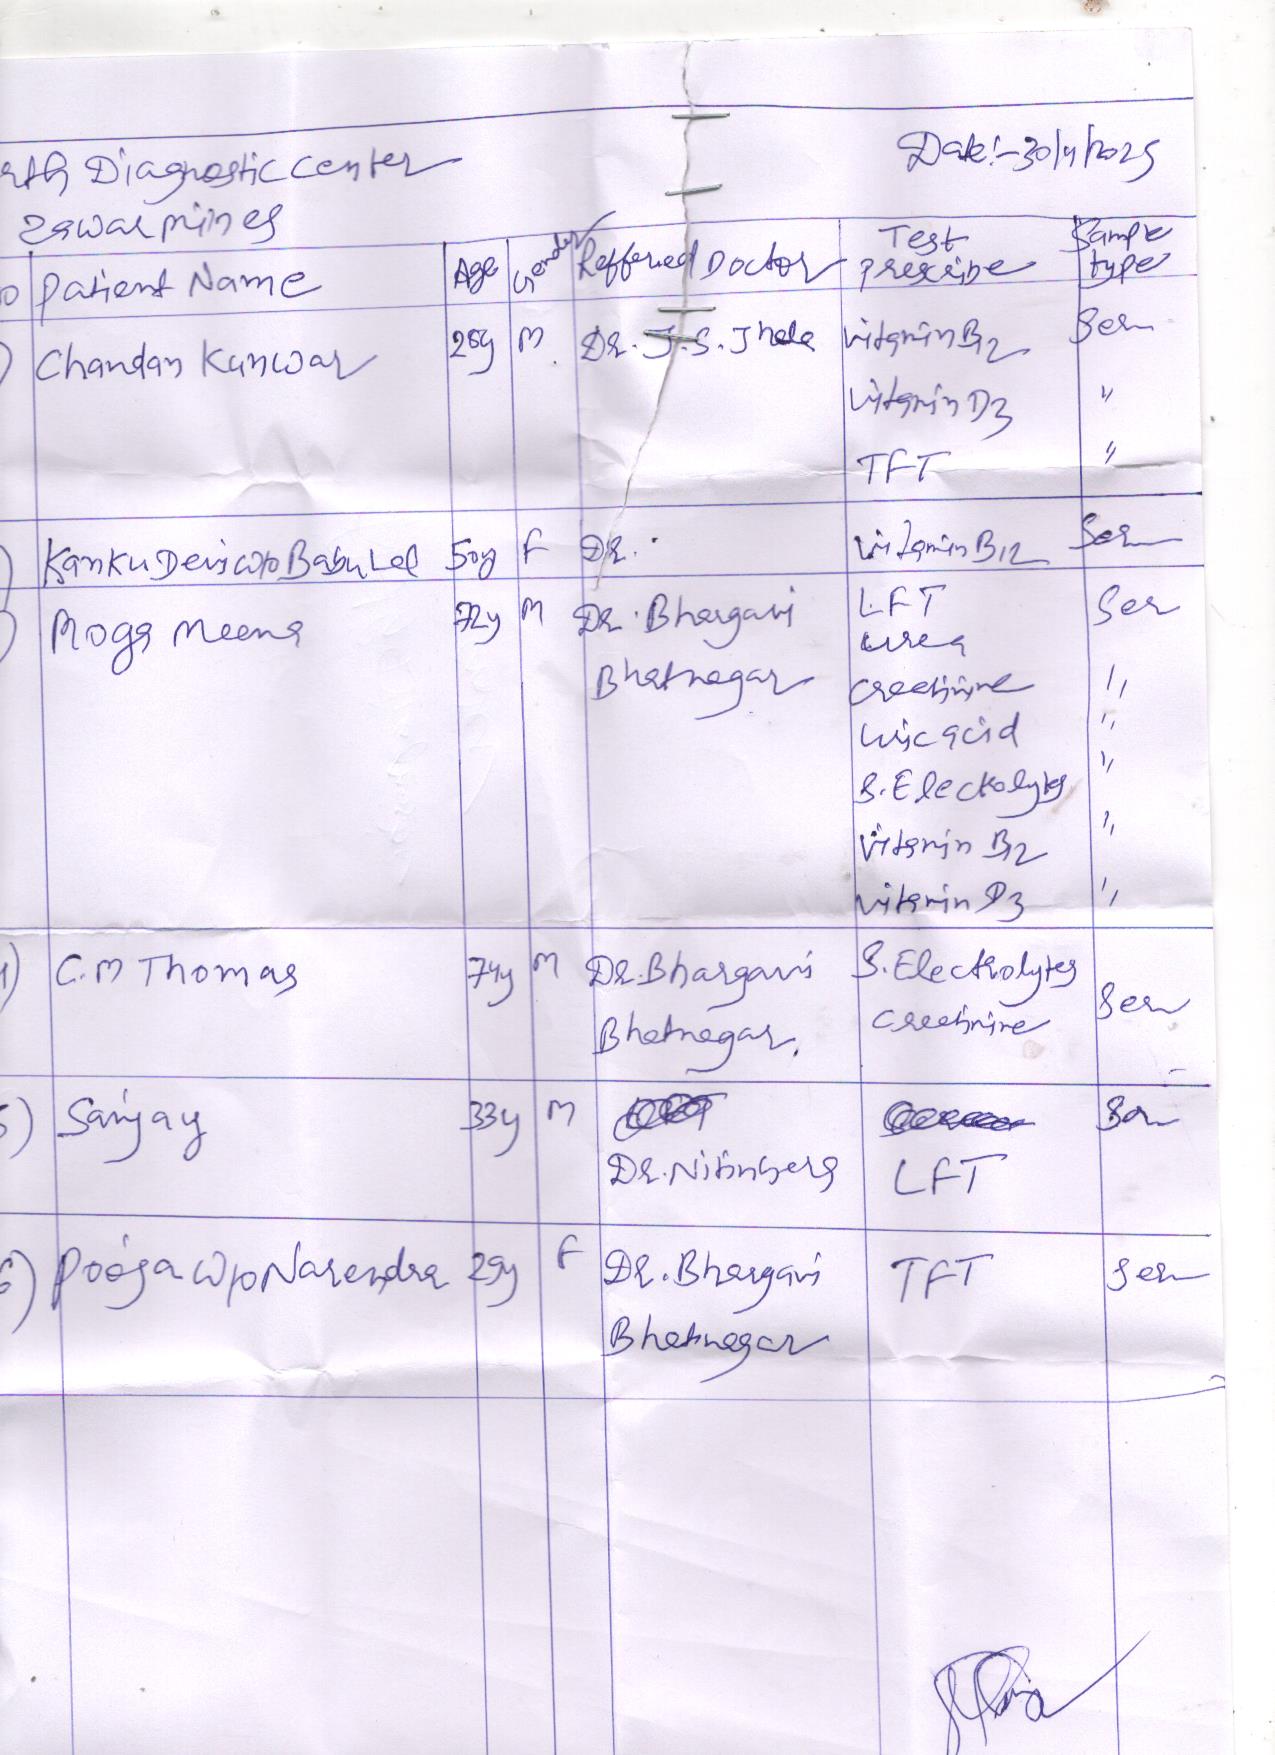 Diagnostic center Date:- 30/4/2025
zawar mines
Patient Name Age Gender Reffered Doctor Test prescribe Sample type
Chandan Kunwar 28y M Dr. J.S. Jhala vitamin B12 Ser
vitamin D3 "
TFT "
Kanku Devi w/o Babu Lal 50y F Dr. vitamin B12 Ser
Moga Meena 72y M Dr. Bhargavi LFT Ser
urea
Bhatnagar creatinine "
uric acid "
S. Electolytes "
vitamin B12 "
vitamin D3 "
C.M Thomas 74y M Dr. Bhargavi S. Electrolytes
Bhatnagar. creatinine Ser
5) Sanjay 33y M Ser
Dr. Nitin LFT
6) Pooja w/o Narendra 29y F Dr. Bhargavi TFT Ser
Bhatnagar